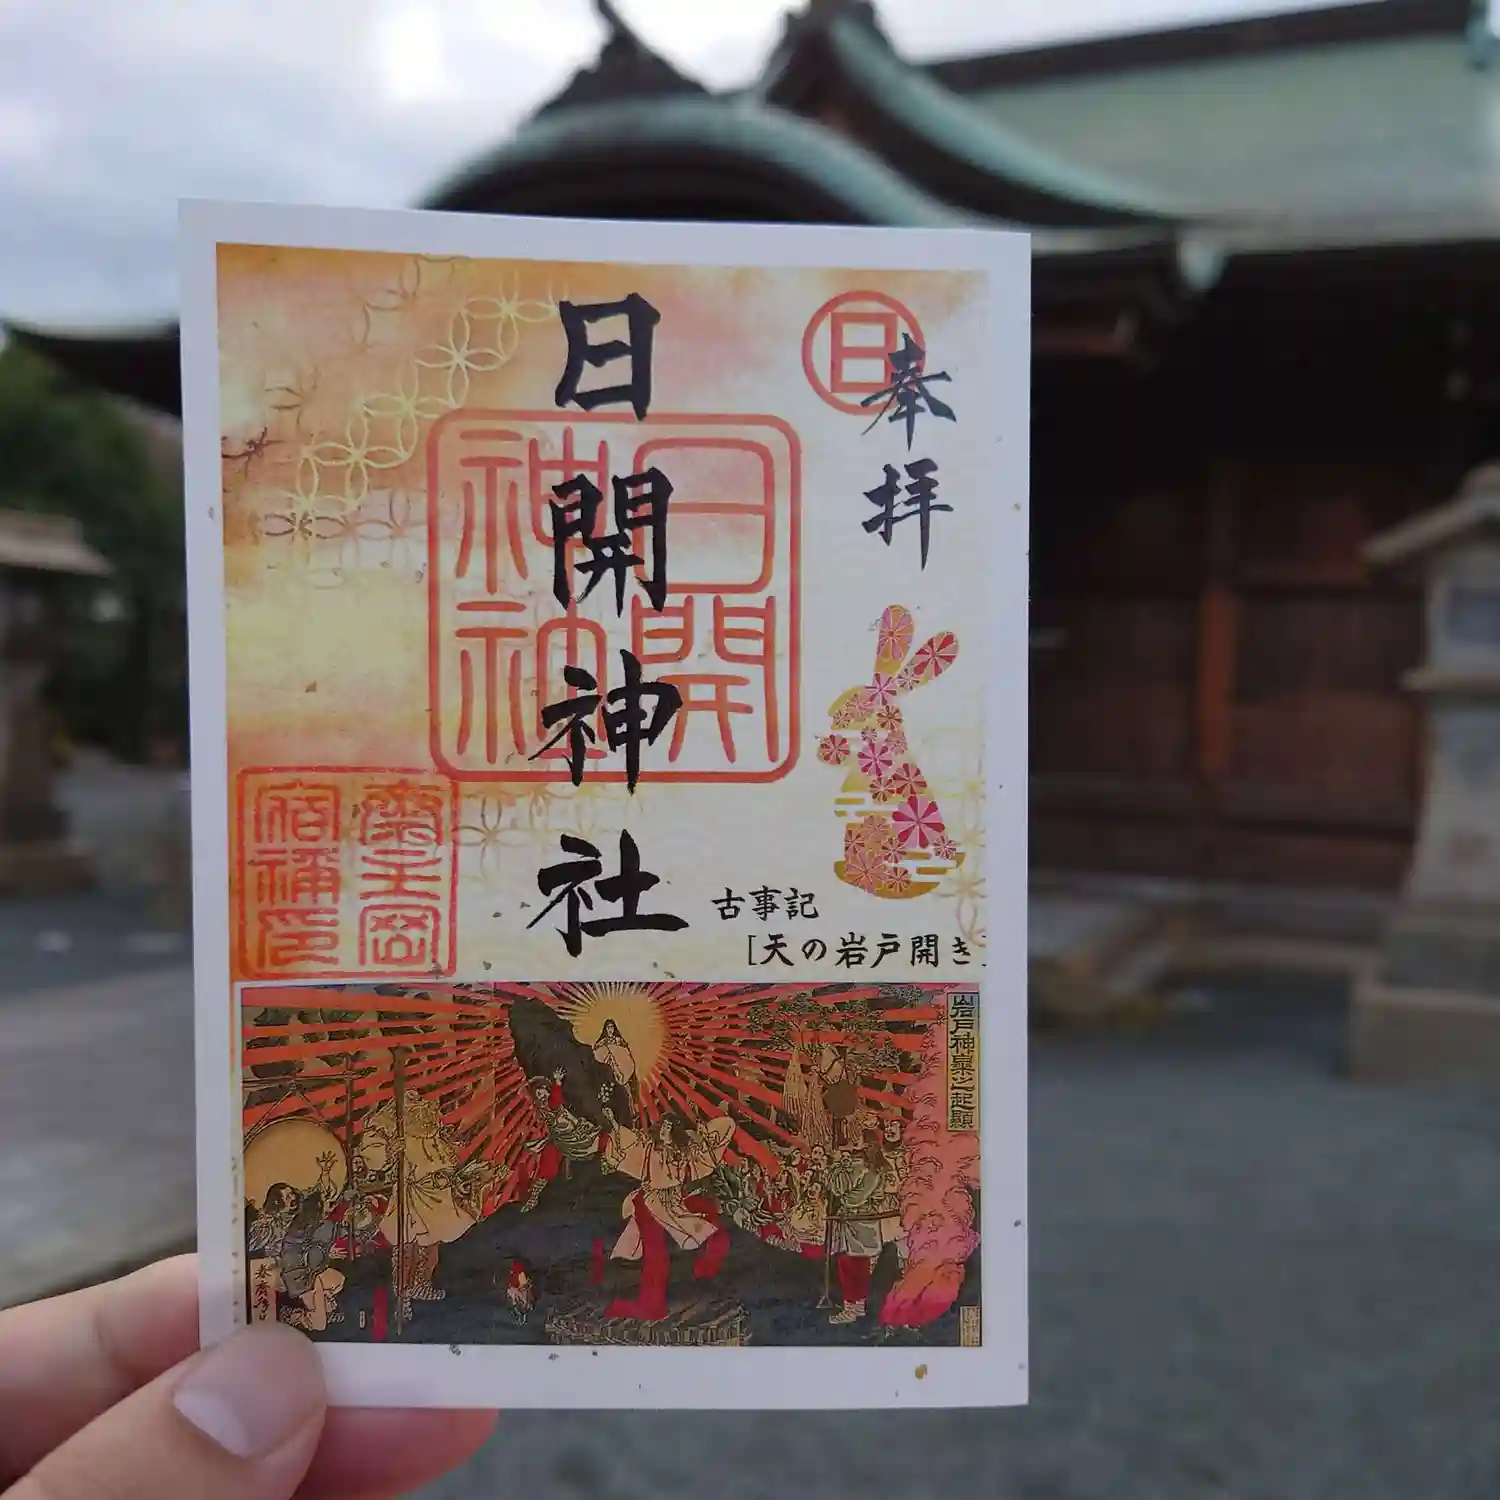 奉拝
日開神社
日開
神社
日
古事記
[天の岩戸開き]
岩戸神楽之起顕